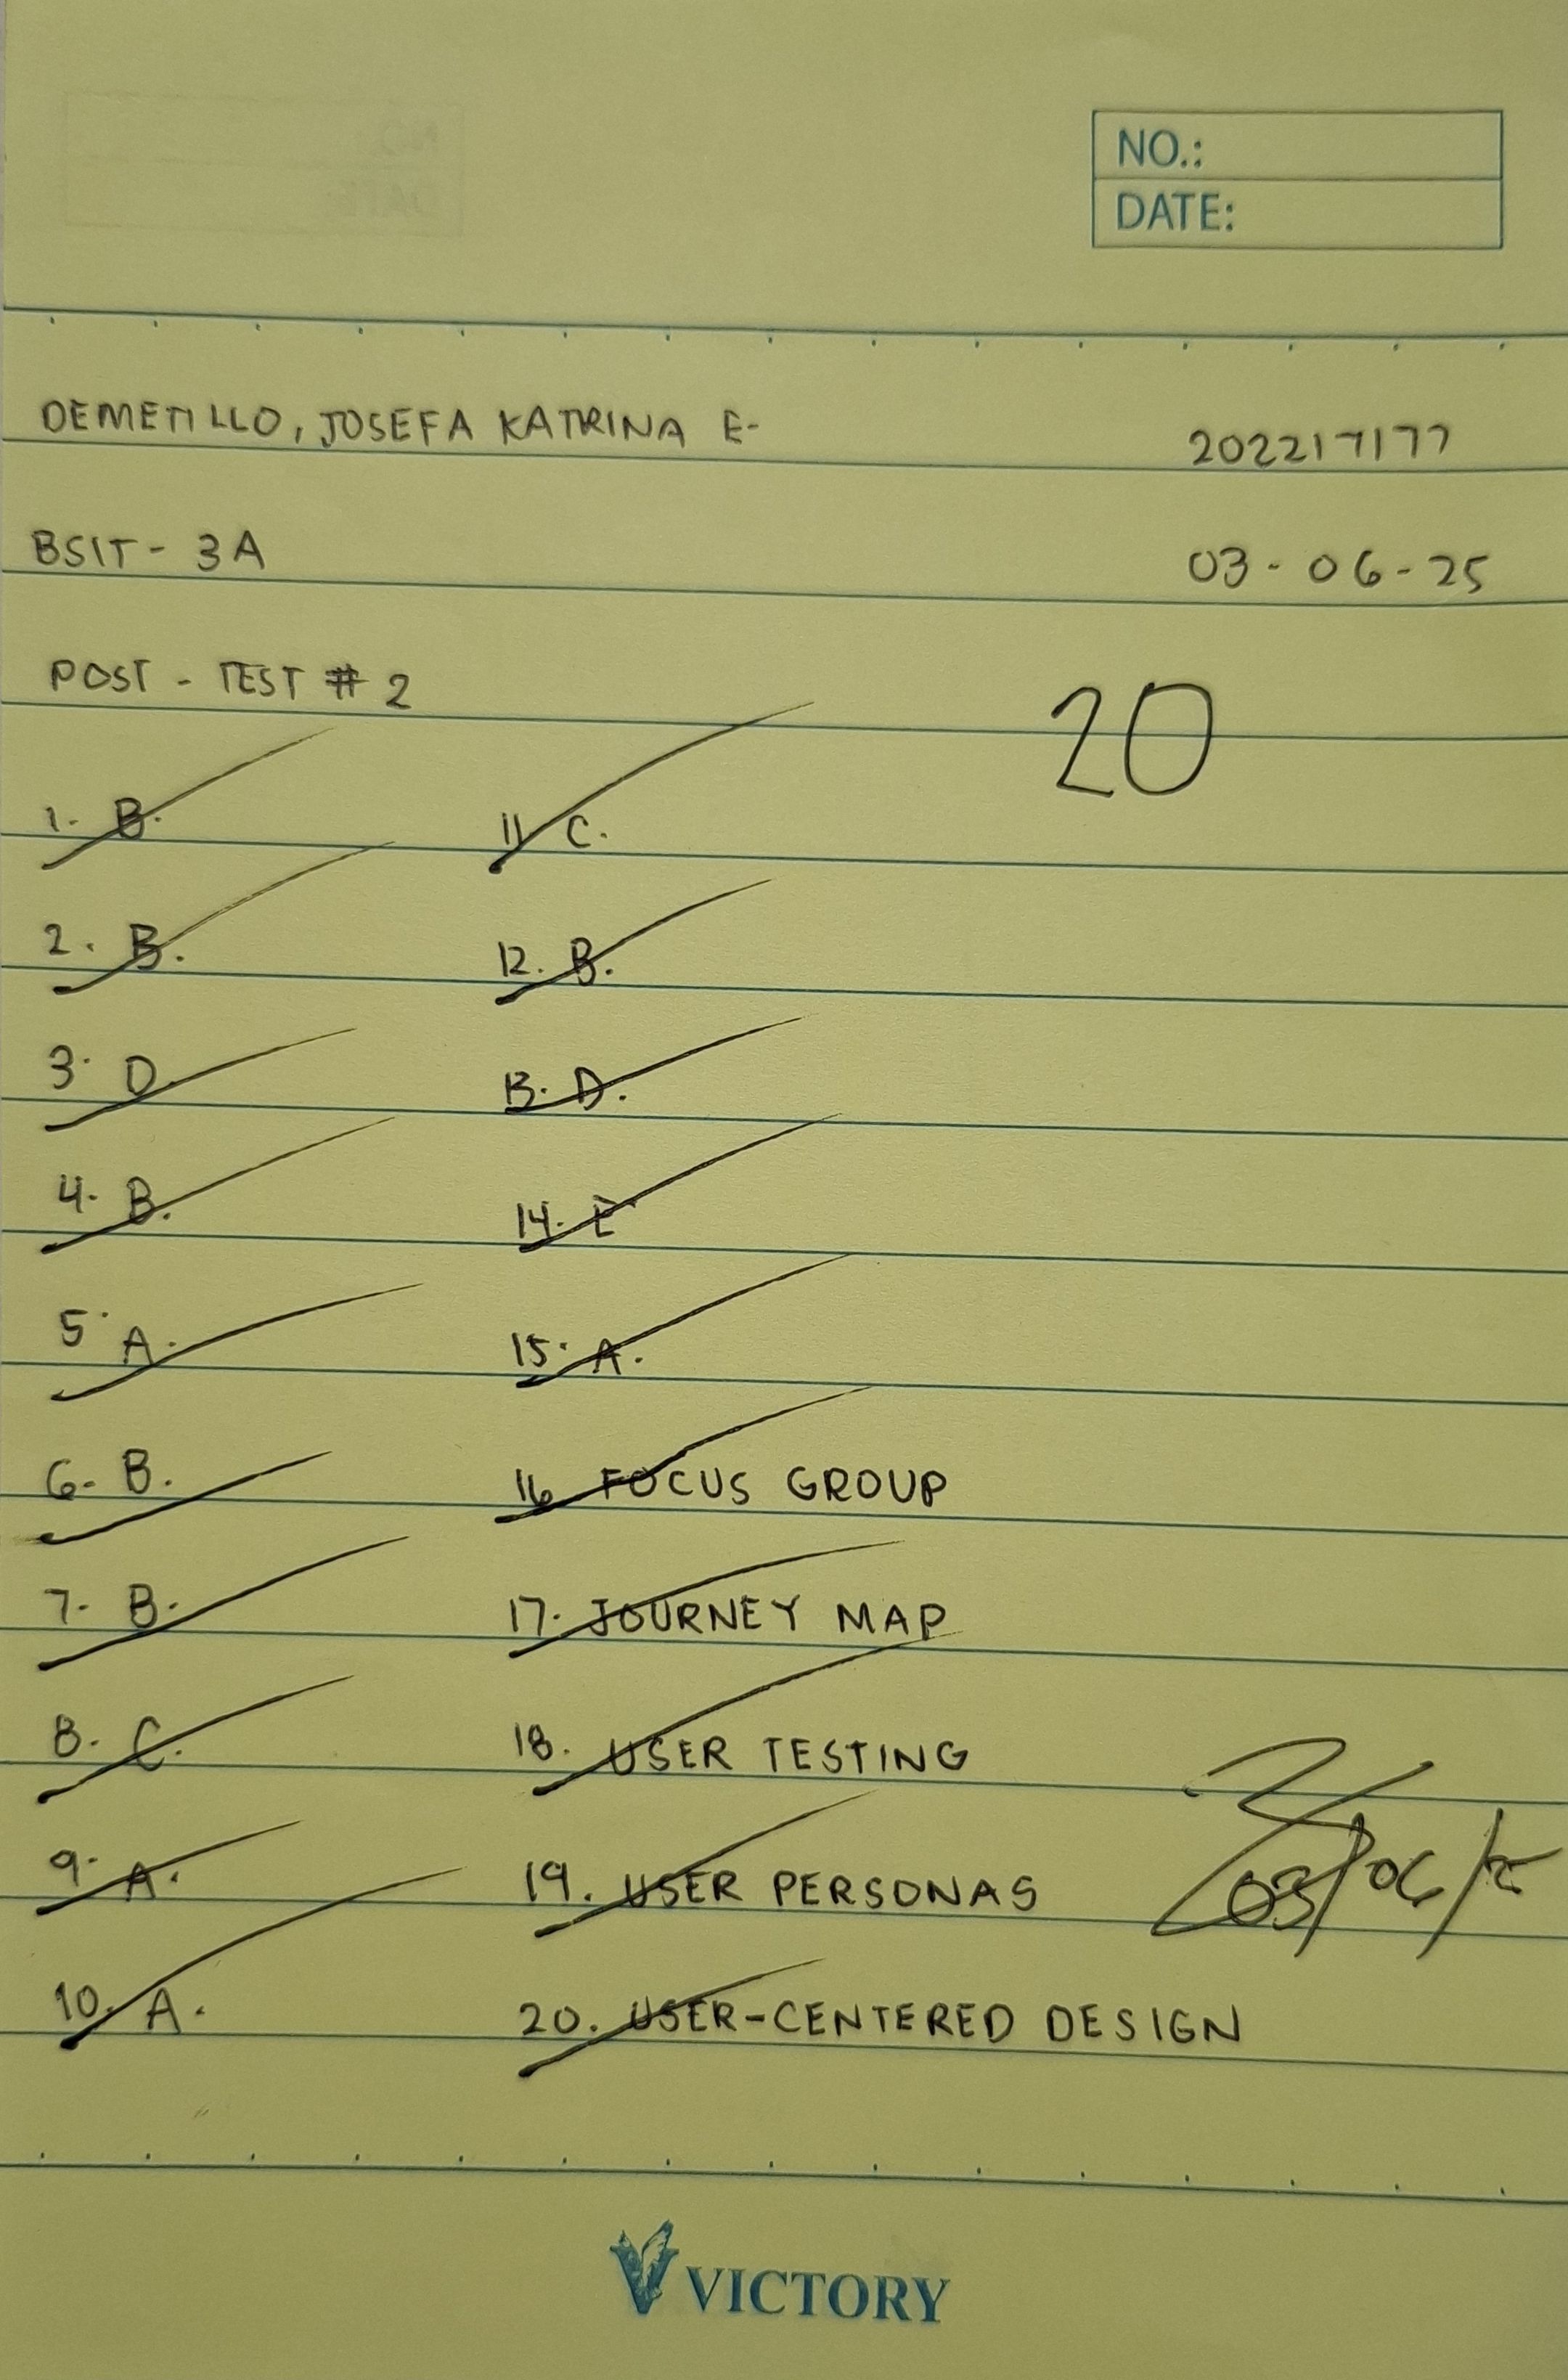 NO.:
DATE:
DEMETILLO, JOSEFA KATRINA E.
202217177
BSIT - 3A
03-06-25
POST - TEST # 2
20
1. B.
2. B.
3. D.
4. B.
5. A.
6. B.
7. B.
8. C.
9. A.
10. A.
11. C.
12. B.
13. D.
14. E.
15. A.
16. FOCUS GROUP
17. JOURNEY MAP
18. USER TESTING
19. USER PERSONAS
20. USER-CENTERED DESIGN
03/06/
VICTORY